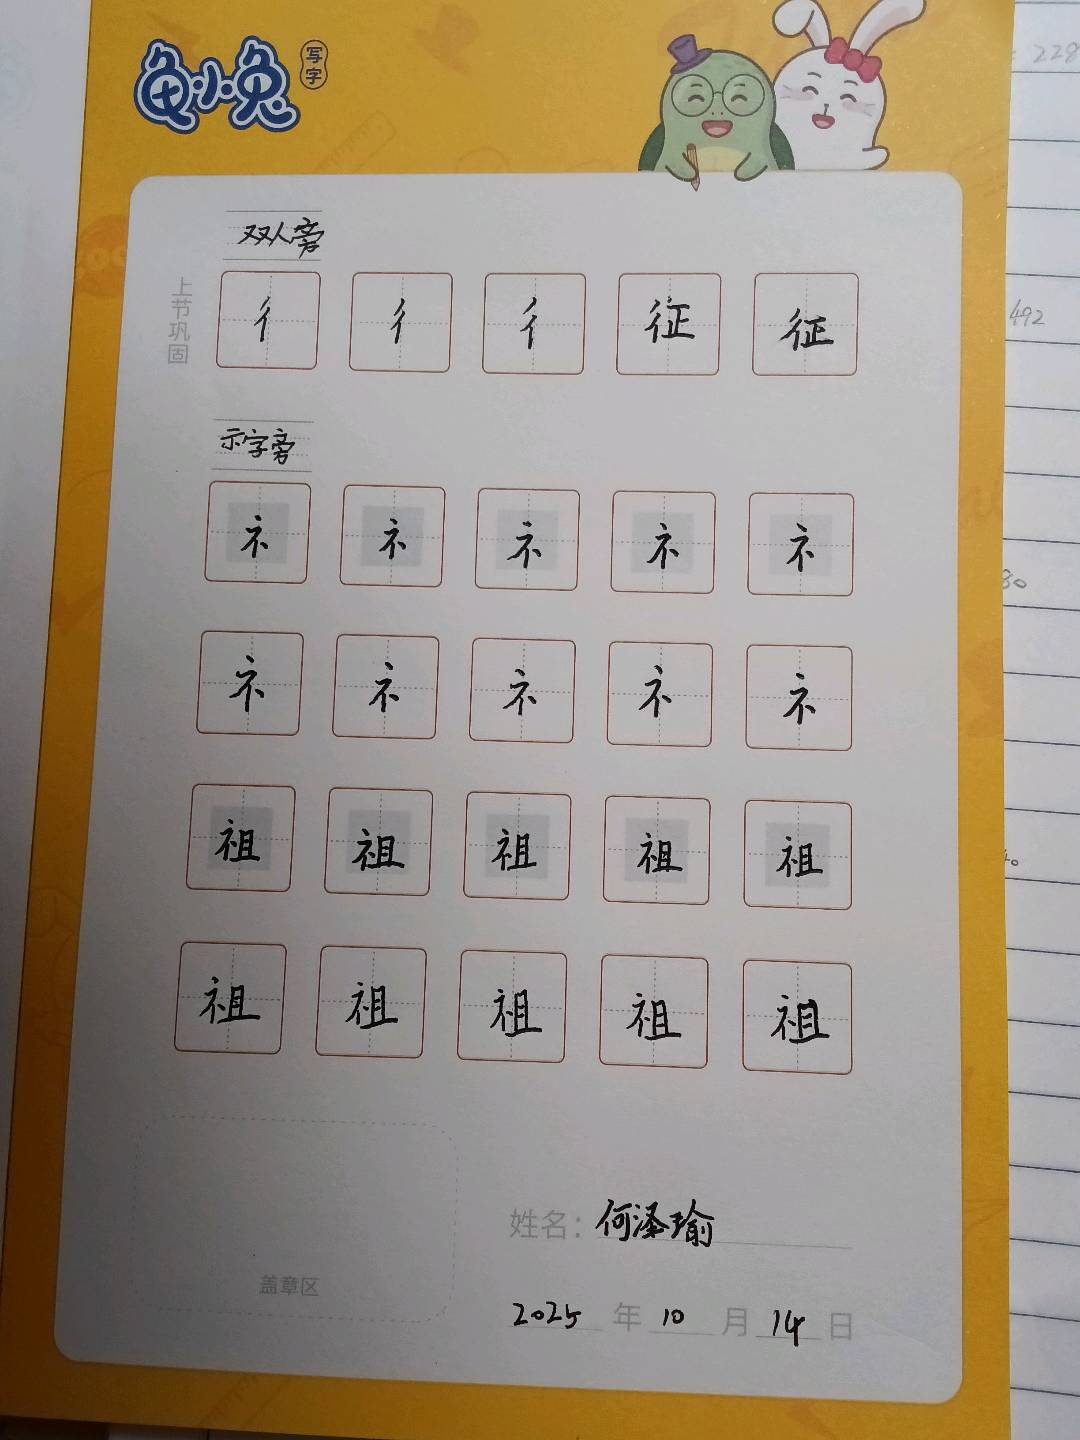 龟小兔 写字
双人旁
上节巩固
彳 彳 彳 征 征
示字旁
礻 礻 礻 礻 礻
礻 礻 礻 礻 礻
祖 祖 祖 祖 祖
祖 祖 祖 祖 祖
姓名：何泽瑜
盖章区
2025 年 10 月 14 日
228
492
80